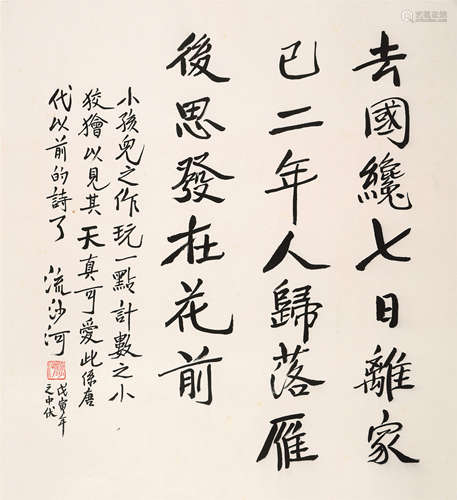 去國纔七日離家
已二年人歸落雁
後思發在花前
小孩兒之作玩一點計數之小
狡獪以見其天真可愛此係唐
代以前的詩了
流沙河
戊寅年
之中伏